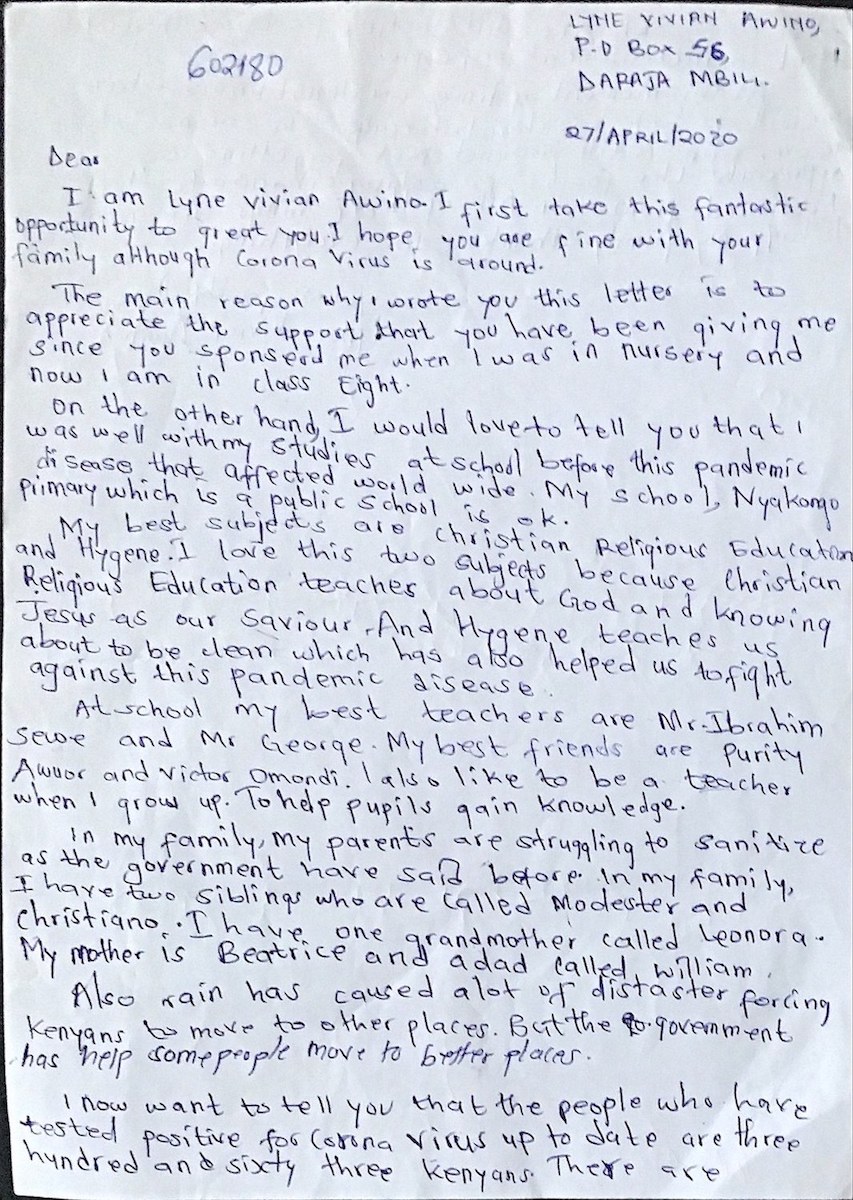 LYNE VIVIAN AWINO,
602180
P.O BOX 56,
DARAJA MBILI.
27/APRIL/2020
Dear
I am Lyne Vivian Awino. I first take this fantastic
opportunity to great you. I hope you are fine with your
family although Corona Virus is around.
The main reason why I wrote you this letter is to
appreciate the support that you have been giving me
since you sponserd me when I was in nursery and
now I am in class Eight.
On the other hand, I would love to tell you that I
was well with my studies at school before this pandemic
disease that affected world wide. My school, Nyakongo
primary which is a public school is ok.
My best subjects are Christian Religious Education
and Hygene. I love this two subjects because Christian
Religious Education teaches about God and knowing
Jesus as our Saviour. And Hygene teaches us
about to be clean which has also helped us to fight
against this pandemic disease.
At school my best teachers are Mr. Ibrahim
Sewe and Mr George. My best friends are Purity
Awuor and Victor Omondi. I also like to be a teacher
when I grow up. To help pupils gain knowledge.
In my family, my parents are struggling to sanitize
as the government have said before. In my family,
I have two siblings who are called Modester and
Christiano. I have one grandmother called Leonora.
My mother is Beatrice and a dad called, William.
Also rain has caused alot of distaster forcing
Kenyans to move to other places. But the government
has help some people move to better places.
I now want to tell you that the people who have
tested positive for Corona Virus up to date are three
hundred and sixty three Kenyans. There are